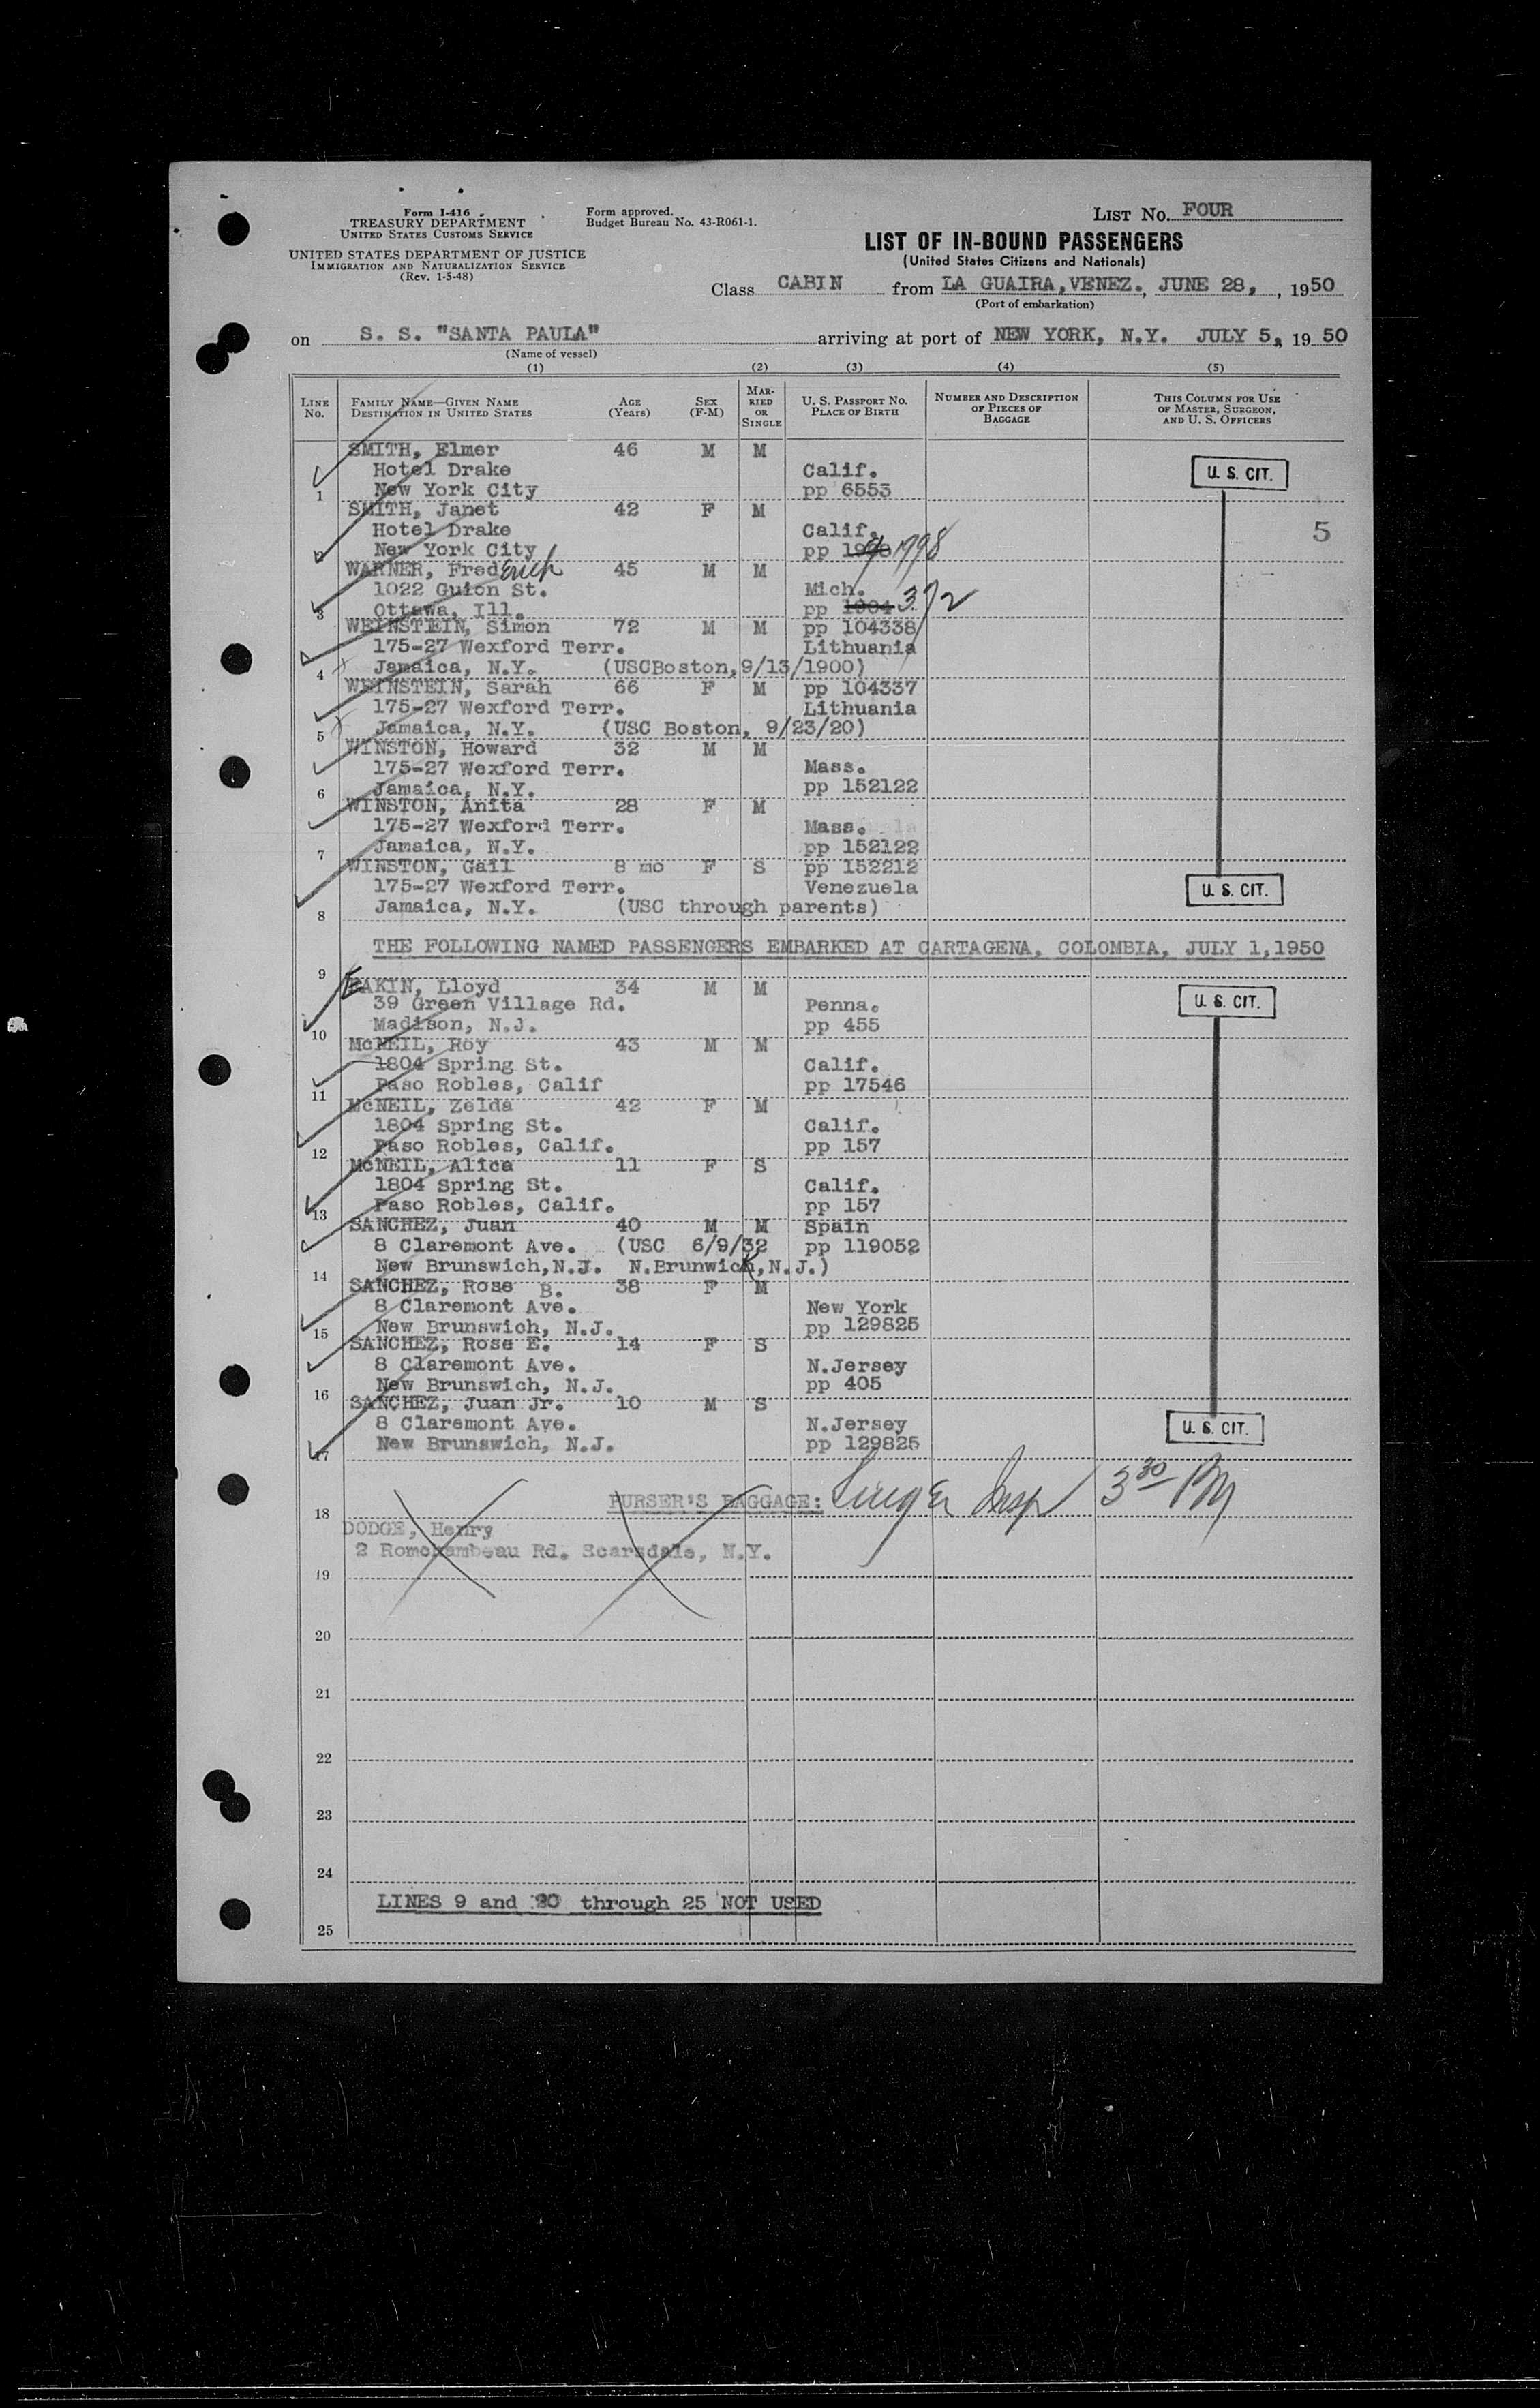 Form I-416
TREASURY DEPARTMENT
UNITED STATES CUSTOMS SERVICE
UNITED STATES DEPARTMENT OF JUSTICE
IMMIGRATION AND NATURALIZATION SERVICE
(Rev. 1-5-48)
Form approved.
Budget Bureau No. 43-R061-1.
LIST No. FOUR
LIST OF IN-BOUND PASSENGERS
(United States Citizens and Nationals)
Class CABIN from LA GUAIRA, VENEZ., JUNE 28, , 1950
(Port of embarkation)
on S. S. "SANTA PAULA" arriving at port of NEW YORK, N.Y. JULY 5, 19 50
(Name of vessel)
(1) (2) (3) (4) (5)
LINE No. FAMILY NAME—GIVEN NAME DESTINATION IN UNITED STATES AGE (Years) SEX (F-M) MARRIED OR SINGLE U. S. PASSPORT NO. PLACE OF BIRTH NUMBER AND DESCRIPTION OF PIECES OF BAGGAGE THIS COLUMN FOR USE OF MASTER, SURGEON, AND U. S. OFFICERS
SMITH, Elmer 46 M M
Hotel Drake Calif. U. S. CIT.
1 New York City pp 6553
SMITH, Janet 42 F M
Hotel Drake Calif. 5
2 New York City pp 1798
WARNER, Frederich 45 M M
1022 Guion St. Mich.
3 Ottawa, Ill. pp 1904 372
WEINSTEIN, Simon 72 M M pp 104338
175-27 Wexford Terr. Lithuania
4 Jamaica, N.Y. (USCBoston,9/13/1900)
WEINSTEIN, Sarah 66 F M pp 104337
175-27 Wexford Terr. Lithuania
5 Jamaica, N.Y. (USC Boston, 9/23/20)
WINSTON, Howard 32 M M
175-27 Wexford Terr. Mass.
6 Jamaica, N.Y. pp 152122
WINSTON, Anita 28 F M
175-27 Wexford Terr. Mass.
7 Jamaica, N.Y. pp 152122
WINSTON, Gail 8 mo F S pp 152212
175-27 Wexford Terr. Venezuela U. S. CIT.
8 Jamaica, N.Y. (USC through parents)
THE FOLLOWING NAMED PASSENGERS EMBARKED AT CARTAGENA, COLOMBIA, JULY 1,1950
9
EAKIN, Lloyd 34 M M
39 Green Village Rd. Penna. U. S. CIT.
10 Madison, N.J. pp 455
McNEIL, Roy 43 M M
1804 Spring St. Calif.
11 Paso Robles, Calif pp 17546
McNEIL, Zelda 42 F M
1804 Spring St. Calif.
12 Paso Robles, Calif. pp 157
McNEIL, Alica 11 F S
1804 Spring St. Calif.
13 Paso Robles, Calif. pp 157
SANCHEZ, Juan 40 M M Spain
8 Claremont Ave. (USC 6/9/32 pp 119052
14 New Brunswich,N.J. N.Brunwick,N.J.)
SANCHEZ, Rose B. 38 F M
8 Claremont Ave. New York
15 New Brunswich, N.J. pp 129825
SANCHEZ, Rose E. 14 F S
8 Claremont Ave. N.Jersey
16 New Brunswich, N.J. pp 405
SANCHEZ, Juan Jr. 10 M S
8 Claremont Ave. N.Jersey U. S. CIT.
17 New Brunswich, N.J. pp 129825
18 PURSER'S BAGGAGE: Insp 3 30 PM
DODGE, Henry
2 Romchambeau Rd. Scarsdale, N.Y.
19
20
21
22
23
24
LINES 9 and 20 through 25 NOT USED
25